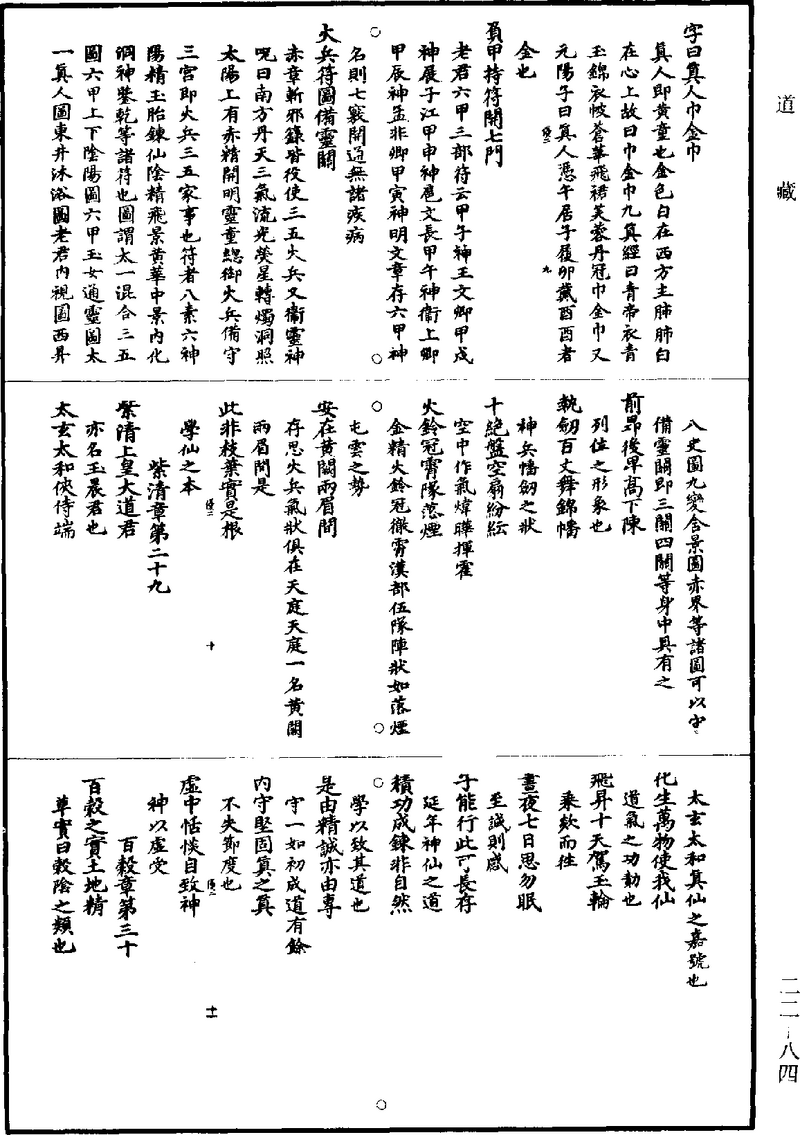 道藏
字曰真人巾金巾
真人即黄童也金色白在西方主肺肺白
在心上故曰巾金巾九真經曰青帝衣青
玉錦衣帔蒼華飛裙芙蓉丹冠巾金巾又
元陽子曰真人憑午居子履卯戴酉酉者
金也
負甲持符開七門
老君六甲三部符云甲子神王文卿甲戌
神展子江甲申神扈文長甲午神衞上卿
甲辰神孟非卿甲寅神明文章存六甲神
名則七竅開通無諸疾病
火兵符圖備靈關
赤章斬邪籙皆役使三五火兵又衞靈神
呪曰南方丹天三氣流光熒星轉燭洞照
太陽上有赤精開明靈童總御火兵備守
三宮即火兵三五家事也符者八素六神
陽精玉胎鍊仙陰精飛景黄華中景内化
洞神鑒乾等諸符也圖謂太一混合三五
圖六甲上下陰陽圖六甲玉女通靈圖太
一真人圖東井沐浴圖老君内視圖西昇
九
八史圖九變含景圖赤界等諸圖可以
備靈關即三關四關等身中具有之
前昂後卑高下陳
列位之形象也
執劒百丈舞錦幡
神兵幡劒之狀
十絶盤空扇紛紜
空中作氣煒曄揮霍
火鈴冠霄隊落煙
金精火鈴冠徹霄漢部伍隊陣狀如落煙
屯雲之勢
安在黄闕兩眉間
存思火兵氣狀俱在天庭天庭一名黄闕
兩眉間是
此非枝葉實是根
學仙之本
紫清章第二十九
紫清上皇大道君
亦名玉晨君也
太玄太和俠侍端
十
太玄太和真仙之嘉號也
化生萬物使我仙
道氣之功勣也
飛昇十天駕玉輪
乘欻而往
晝夜七日思勿眠
至誠則感
子能行此可長存
延年神仙之道
積功成鍊非自然
學以致其道也
是由精誠亦由專
守一如初成道有餘
内守堅固真之真
不失節度也
虛中恬惔自致神
神以虛受
百穀章第三十
百穀之實土地精
草實曰穀陰之類也
十一
二二-八四